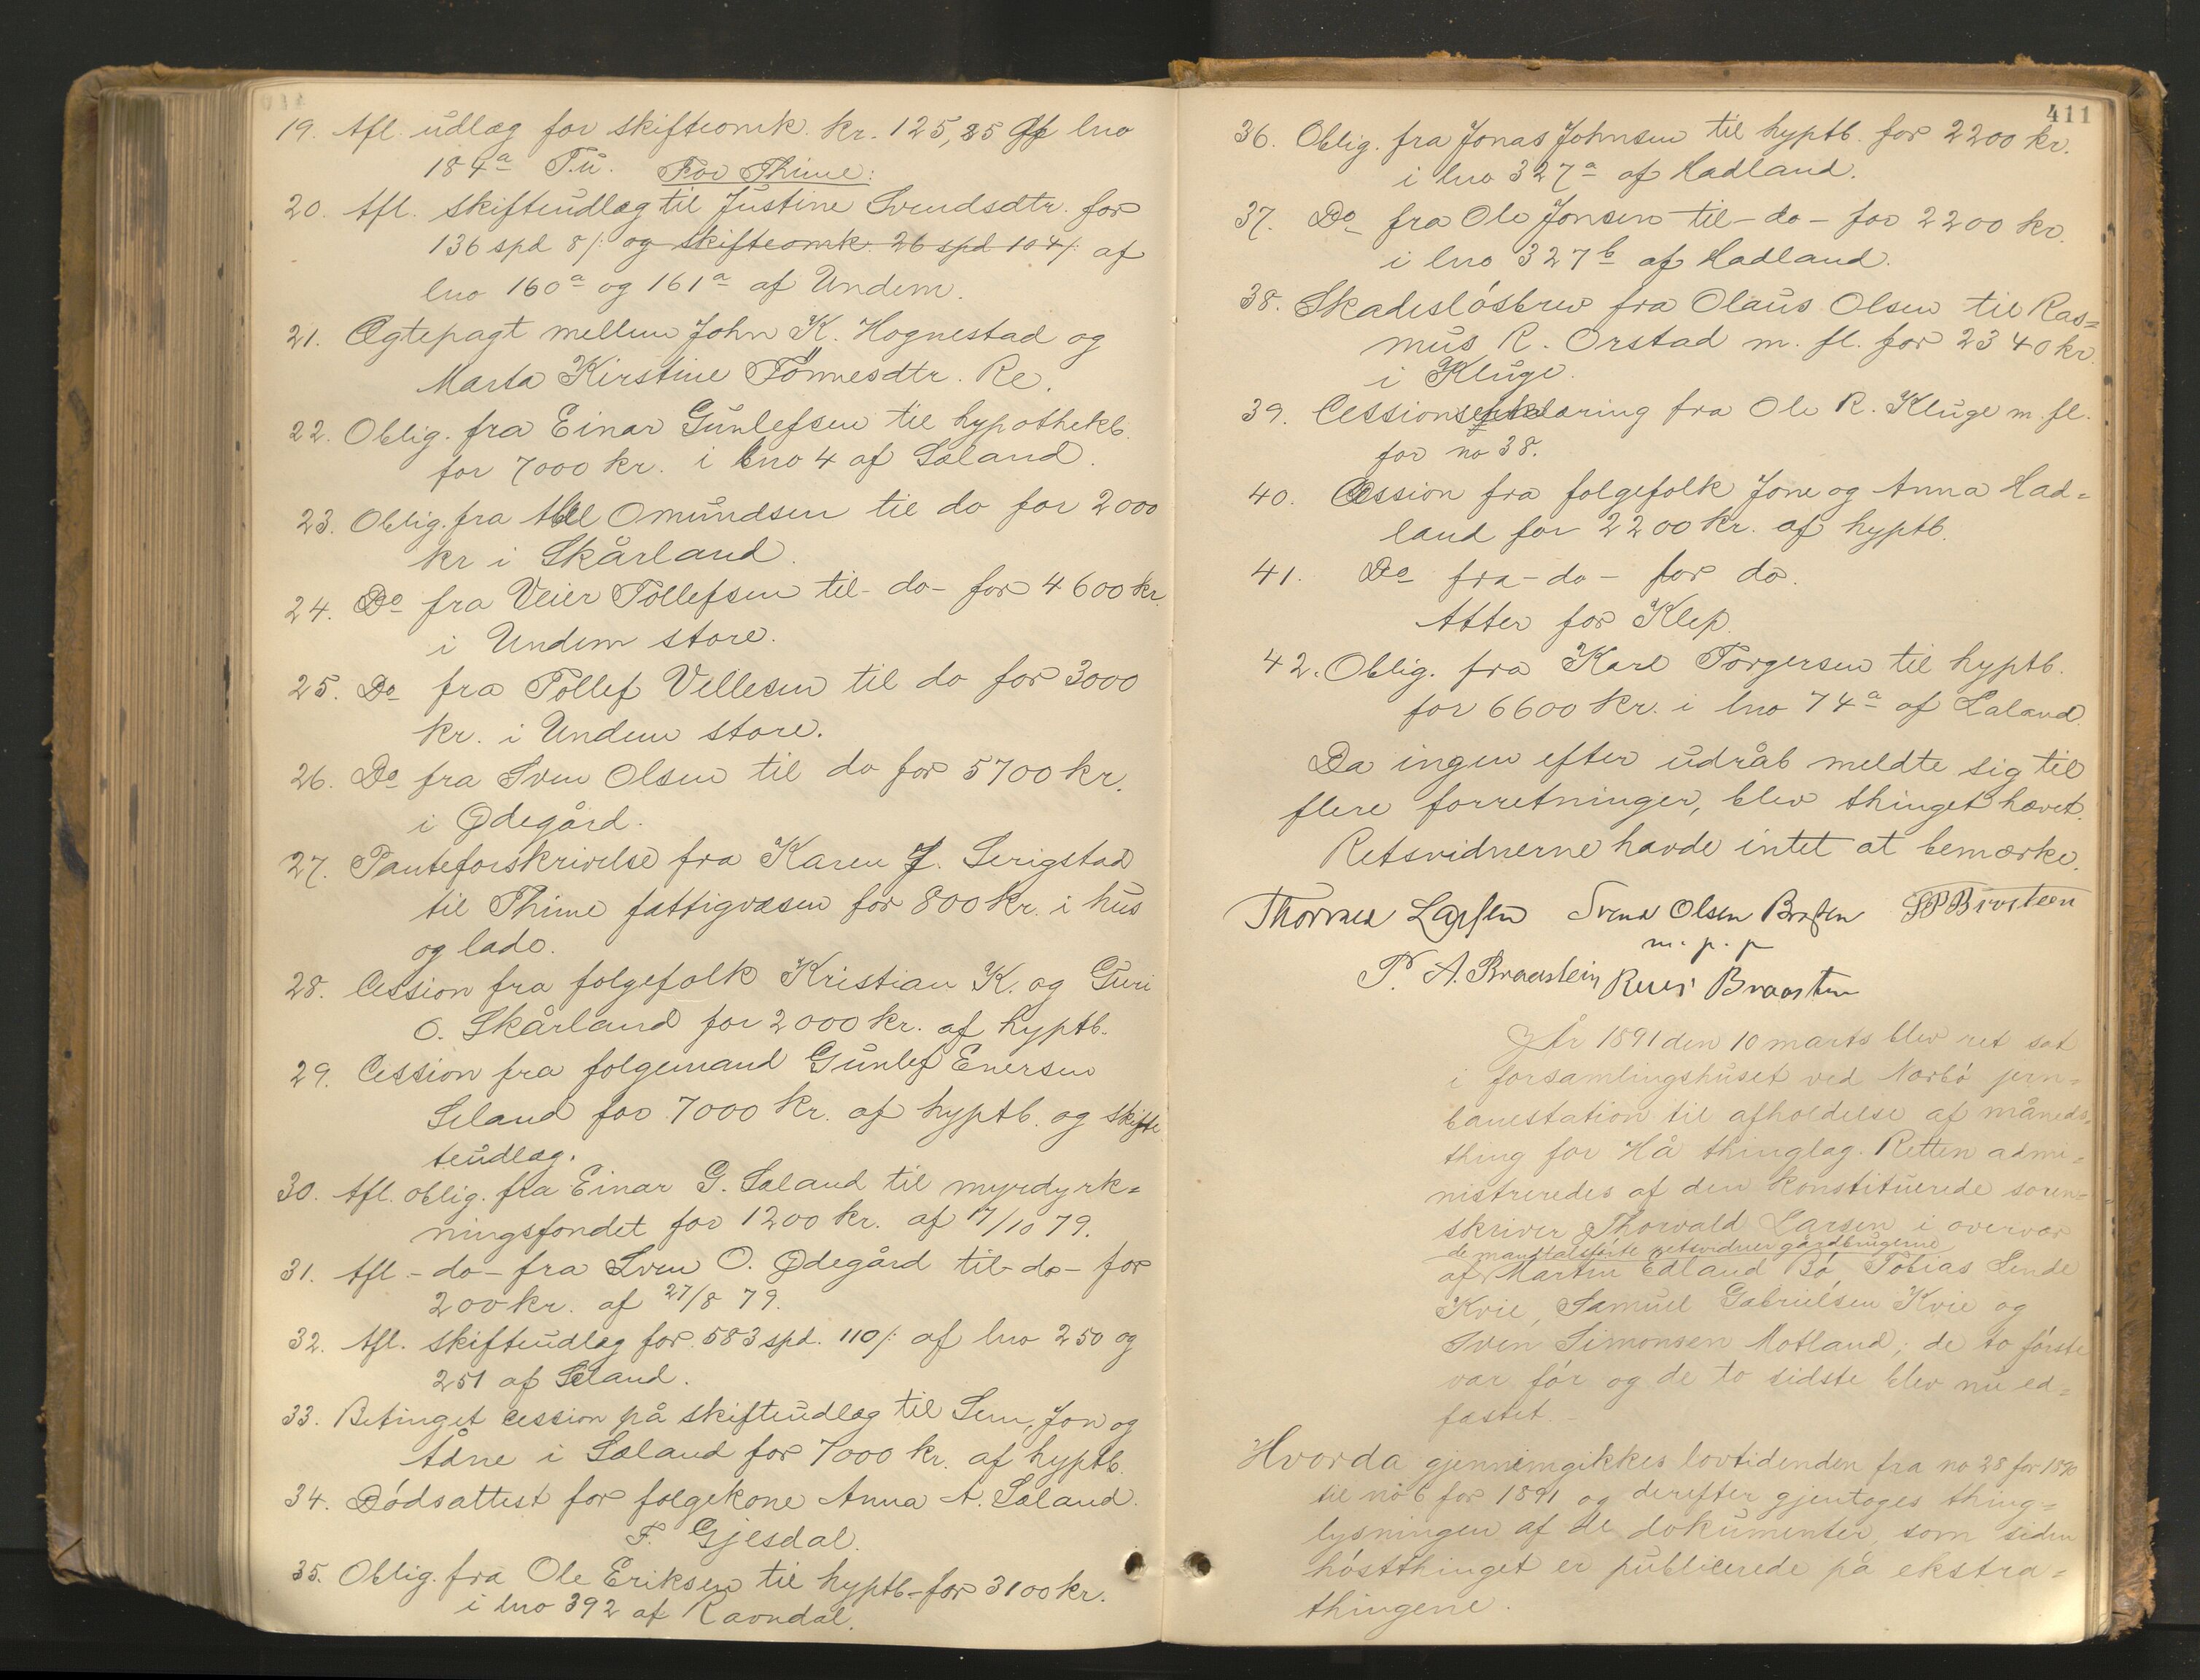 19. Afl. udlæg for skifteomk. kr. 125,25 af lno
184a T.u. For Thime:
20. Afl. skifteudlæg til Justine Svendsdtr. for
136 spd 8 /: og skifteomk. 26 spd 104/: af
lno 160a og 161a af Undem.
21. Ægtepagt mellem John K. Hognestad og
Marta Kirstine Tönnesdtr. Re.
22. Oblig. fra Einar Gunlefsen til hypothekb.
for 7000 kr. i lno 4 af Sæland.
23. Oblig. fra Abel Omundsen til do for 2000
kr i Skårland.
24. Do fra Veier Tollefsen til - do - for 4600 kr.
i Undem store.
25. Do fra Tollef Villesen til do for 3000
kr. i Undem store.
26. Do fra Sven Olsen til do for 5700 kr.
i Ødegård.
27. Panteforskrivelse fra Karen J. Serigstad
til Thime fattigvæsen for 800 kr. i hus
og lade.
28. Cession fra folgefolk Kristian K. og Guri
O. Skårland for 2000 kr. af hyptb.
29. Cession fra folgemand Gunlef Enersen
Seland for 7000 kr. af hyptb. og skifte
teudlæg.
30. Afl. oblig. fra Einar G. Sæland til myrdyrk=
ningsfondet for 1200 kr. af 17/10 79.
31. Afl. - do - fra Sven O. Ødegård til - do - for
200 kr. af 27/8 79.
32. Afl. skifteudlæg for 583 spd. 110 /: af lno 250 og
251 af Sæland.
33. Betinget cession på skifteudlæg til Sem, Jon og
Ådne i Sæland for 7000 kr. af hyptb.
34. Dödsattest for folgekone Anna A. Sæland.
F. Gjesdal.
35. Oblig. fra Ole Eriksen til hyptb. for 3100 kr.
i lno 392 af Ravndal.
411
36. Oblig. fra Jonas Johnsen til hyptb. for 2200 kr.
i lno 327a af Hadland.
37. Do fra Ole Jonsen til - do - for 2200 kr.
i lno 327b af Hadland.
38. Skadeslösbrev fra Olaus Olsen til Ras=
mus R. Orstad m. fl. for 2340 kr.
i Kluge.
39. Cessionserklæring fra Ole R. Kluge m. fl.
for no 38.
40. Cession fra folgefolk Jone og Anna Had=
land for 2200 kr. af hyptb.
41. Do fra - do - for do.
Atter for Klep.
42. Oblig. fra Karl Torgersen til hyptb.
for 6600 kr. i lno 74a af Laland.
Da ingen efter udråb meldte sig til
flere forretninger, blev thinget hævet.
Retsvidnerne havde intet at bemærke.
Thorvald Larsen Svend Olsen Braasten
m. p. p
P. A. Braastein Braasten
År 1891 den 10 marts blev ret sat
i forsamlingshuset ved Nærbö jern=
banestation til afholdelse af måneds=
thing for Hå thinglag. Retten admi=
nistreredes af den konstituerede soren=
skriver Thorvald Larsen i overvær
de mandtalsförte retsvidner gårdbrugerne
af Martin Edland Bö, Tobias Lende
Kvie, Samuel Gabrielsen Kvie og
Sven Simonsen Motland; de to förste
var för og de to sidste blev nu ed=
fæstet.
Hvorda gjennemgikkes lovtidenden fra no 28 for 1890
til no 6 for 1891 og derefter gjentoges thing=
lysningen af de dokumenter som siden
höstthinget er publicerede på ekstra=
thingene.